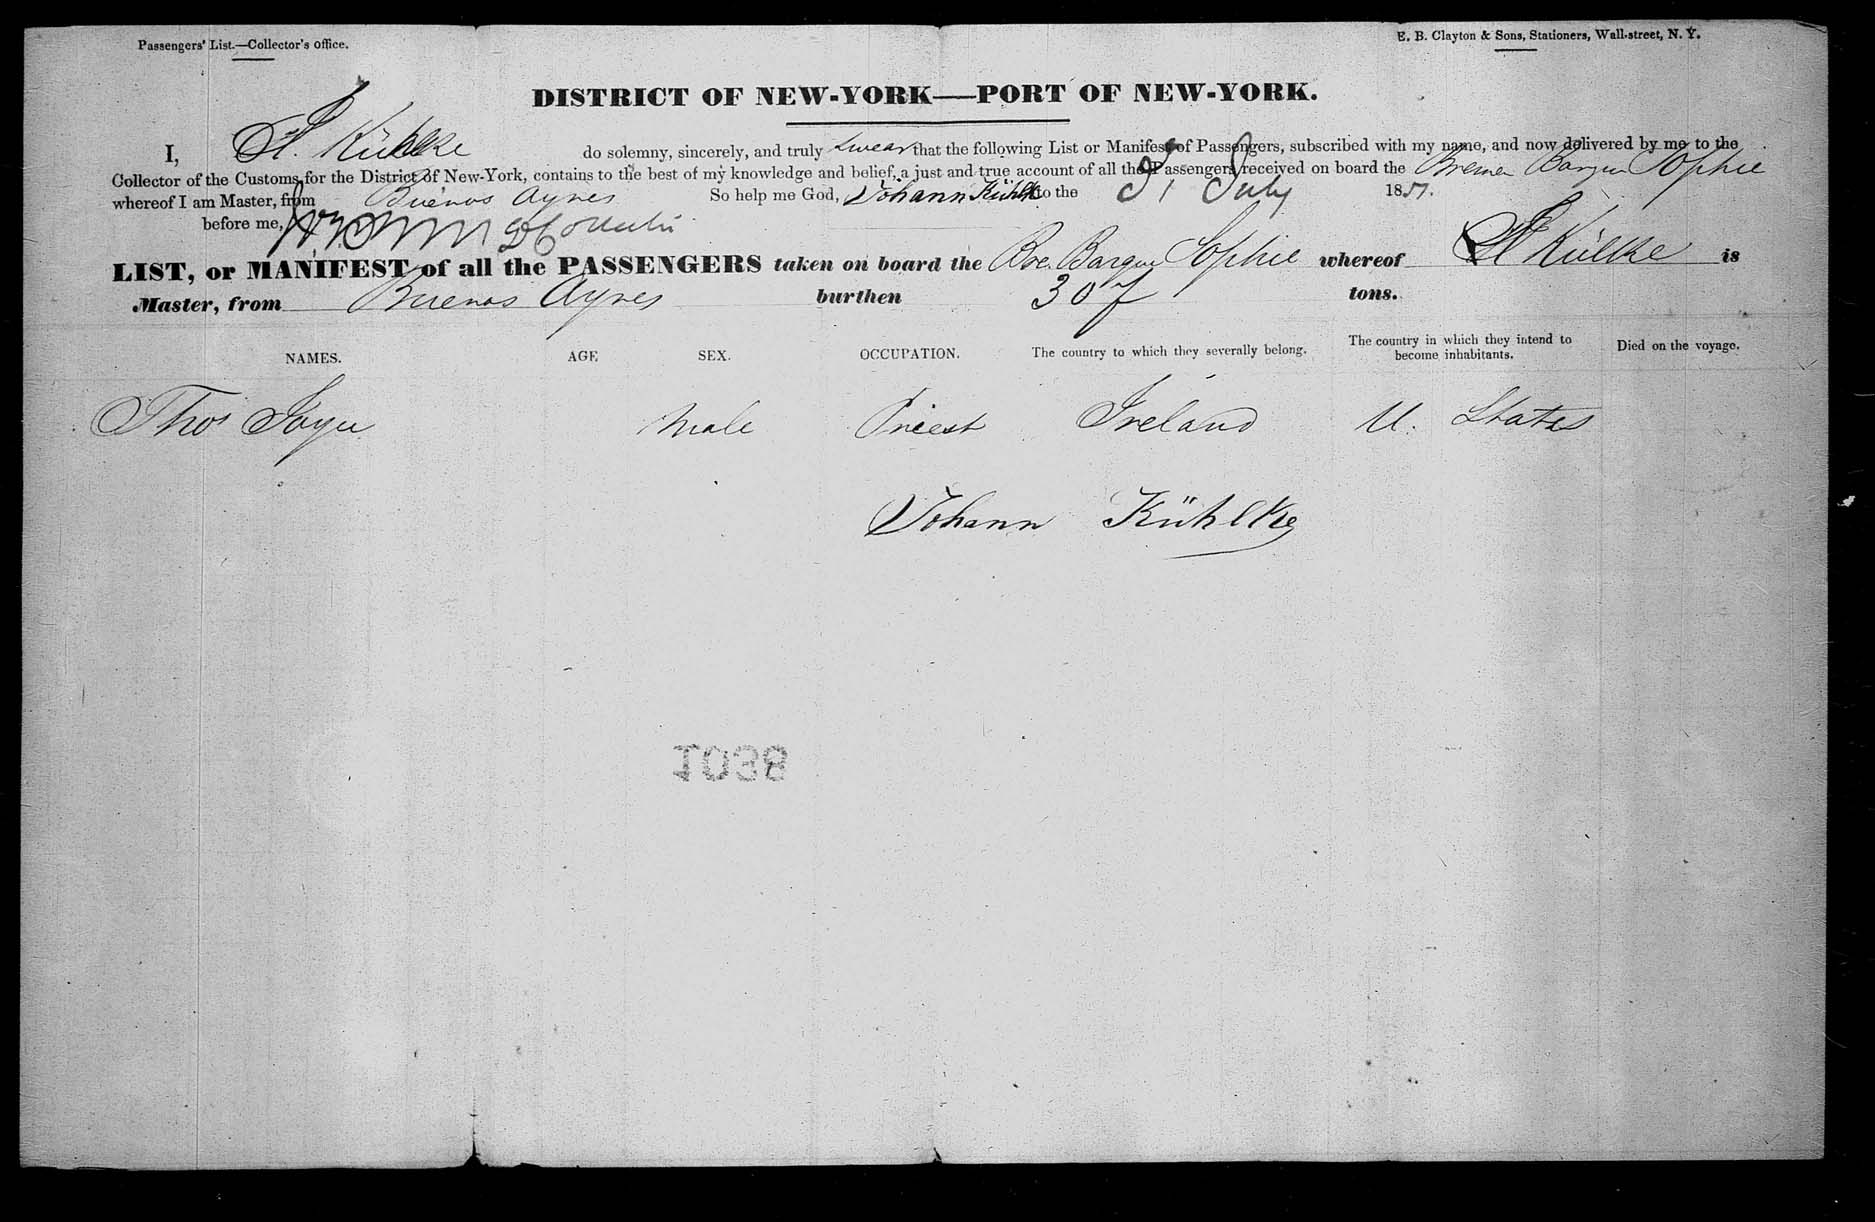 Passengers' List.—Collector's office.
E. B. Clayton & Sons, Stationers, Wall-street, N. Y.
DISTRICT OF NEW-YORK—PORT OF NEW-YORK.
I, Kühlke do solemny, sincerely, and truly swear that the following List or Manifest of Passengers, subscribed with my name, and now delivered by me to the
Collector of the Customs for the District of New-York, contains to the best of my knowledge and belief, a just and true account of all the Passengers received on board the Bremen Barque Sophie
whereof I am Master, from Buenos Ayres So help me God, Johann Kühlke to the July 1857.
before me,
LIST, or MANIFEST of all the PASSENGERS taken on board the Bre. Barque Sophie whereof Külke is
Master, from Buenos Ayres burthen 307 tons.
NAMES. AGE SEX. OCCUPATION. The country to which they severally belong. The country in which they intend to become inhabitants. Died on the voyage.
Thos Joyce Male Priest Ireland U. States
Johann Kühlke
1038